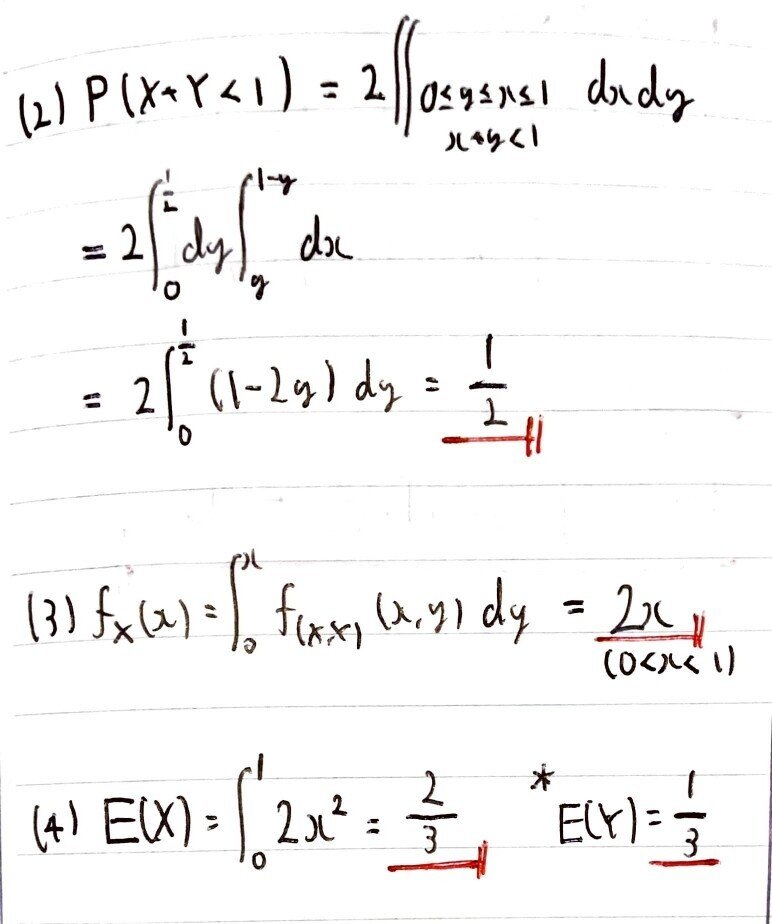 (2) P(X+Y<1) = 2∬ 0≤y≤x≤1 dxdy
x+y<1
= 2∫₀^{1/2} dy ∫_y^{1-y} dx
= 2∫₀^{1/2} (1-2y) dy = 1/2
(3) f_X(x) = ∫₀^x f_{(X,X)} (x,y) dy = 2x
(0<x<1)
(4) E(X) = ∫₀^1 2x² = 2/3 * E(Y) = 1/3